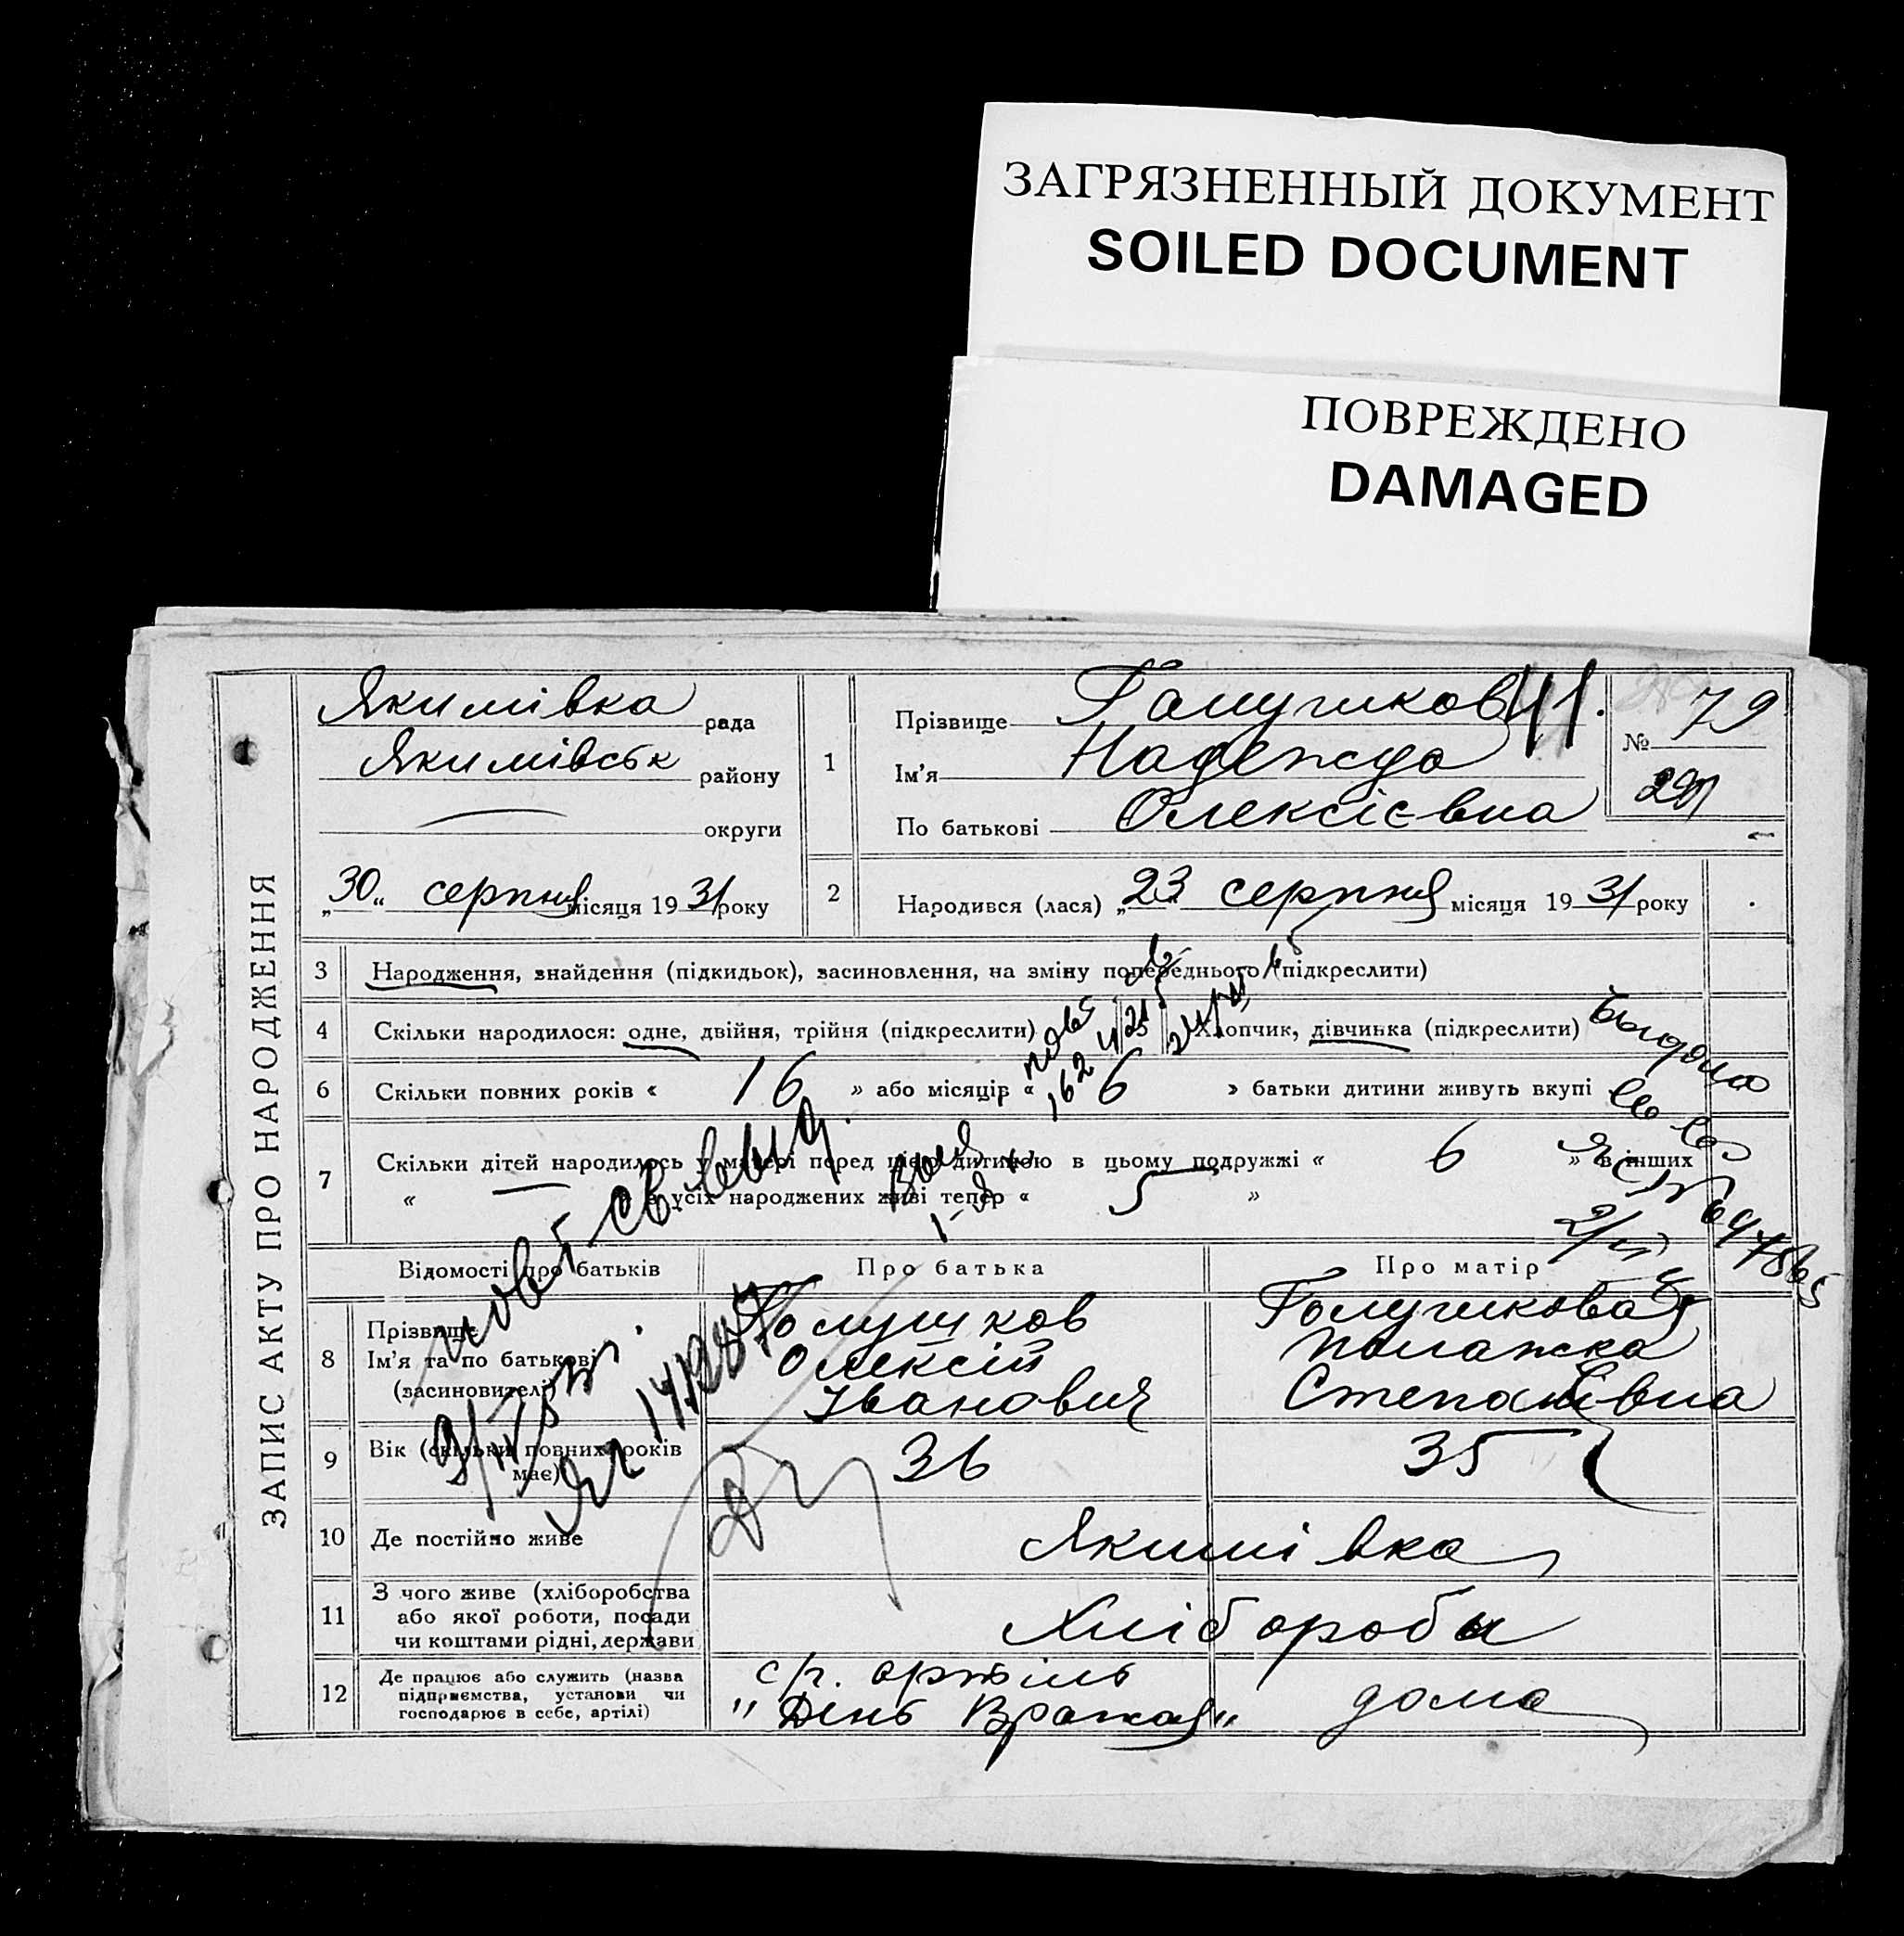 ЗАГРЯЗНЕННЫЙ ДОКУМЕНТ
SOILED DOCUMENT
ПОВРЕЖДЕНО
DAMAGED
ЗАПИС АКТУ ПРО НАРОДЖЕННЯ
Якимівка рада
Якимівськ району
округи
„30“ серпня місяця 1931 року
1
Прізвище
Ім'я Надежда
По батькові Олексієвна
№ 79
2 Народився (лася) „23 серпня місяця 1931 року
3 Народження, знайдення (підкидьок), засиновлення, на зміну попереднього (підкреслити)
4 Скільки народилося: одне, двійня, трійня (підкреслити) Хлопчик, дівчинка (підкреслити)
6 Скільки повних років « 16 » або місяців « 6 » батьки дитини живуть вкупі
7 Скільки дітей народилось у матері перед цією дитиною в цьому подружжі « 6 » в інших
« » з усіх народжених живі тепер « 5 »
Відомості про батьків Про батька Про матір
8 Прізвище
Ім'я та по батькові
(засиновителі)
Голушков
Олексій
Іванович
Голушкова
Палажка
Степанівна
9 Вік (скільки повних років має) 36 35
10 Де постійно живе Якимівка
11 З чого живе (хліборобства
або якої роботи, посади
чи коштами рідні, держави
Хлібороби
12 Де працює або служить (назва
підприємства, установи чи
господарює в себе, артілі)
с/г. артіль
"День Врожая"
дома